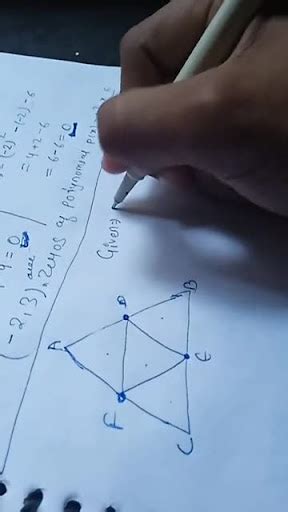 (-2)² -(-2) -6
= 4+2-6
= 6-6=0
(-2,3) are zeros of polynomial P(x)
Given⇒
A
D
B
F
E
C